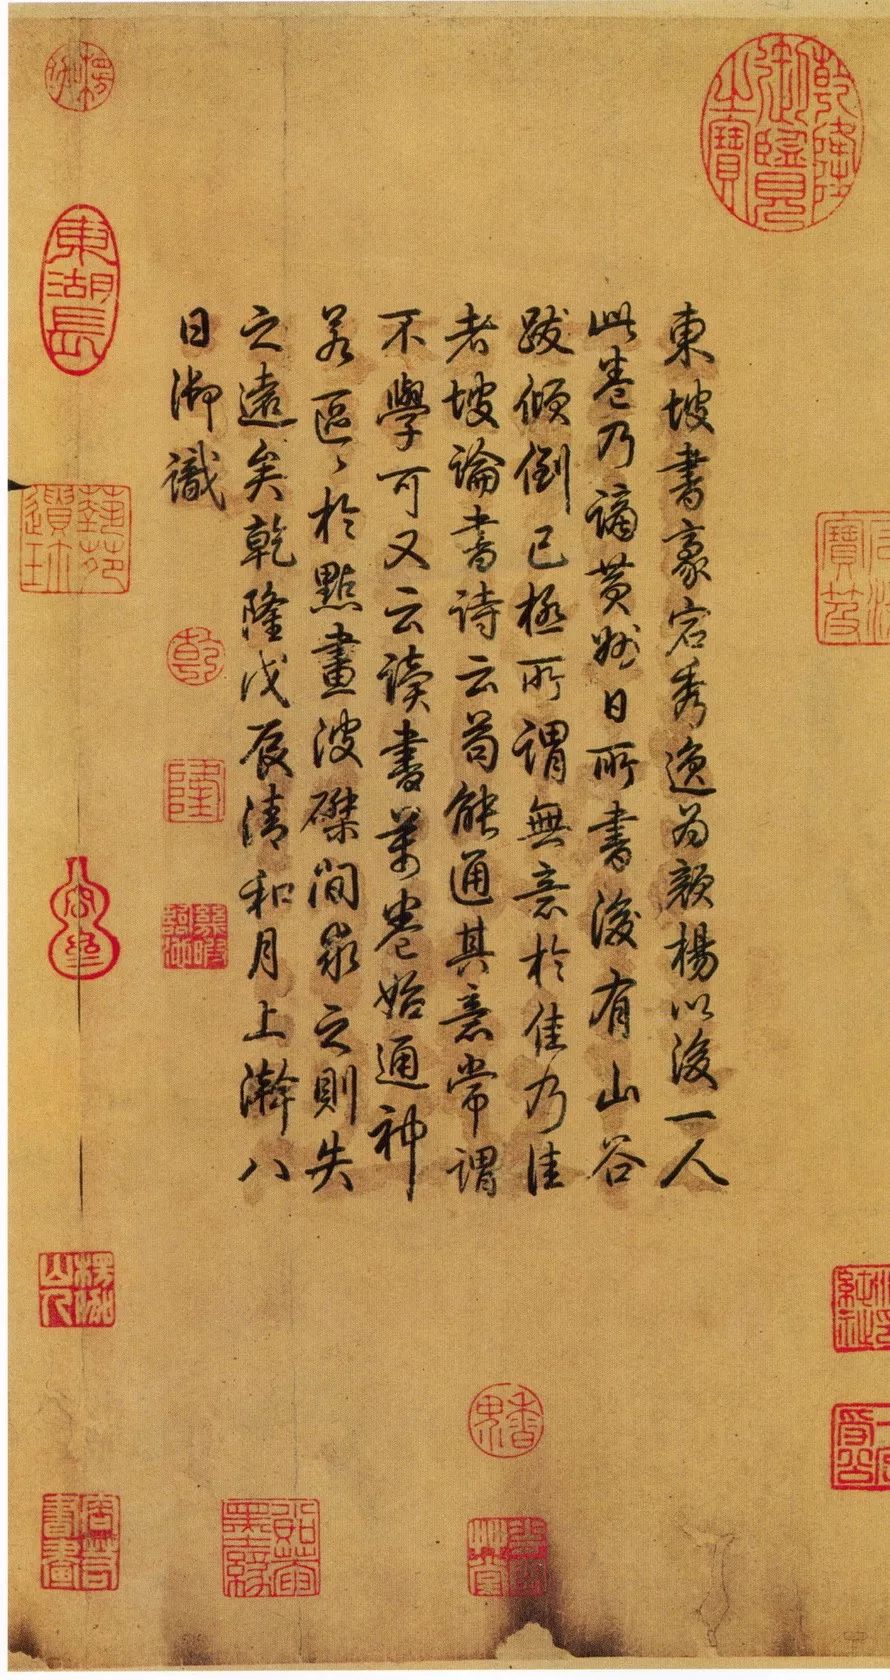 東坡書豪宕秀逸為顏楊以後一人
此卷乃謫黃州日所書後有山谷
跋傾倒已極所謂無意於佳乃佳
者坡論書詩云苟能通其意常謂
不學可又云讀書萬卷始通神
若區〻於點畫波磔間求之則失
之遠矣乾隆戊辰清和月上澣八
日御識
乾隆御覽之寶
東湖長
藝苑遺珍
乾
隆
容若書畫